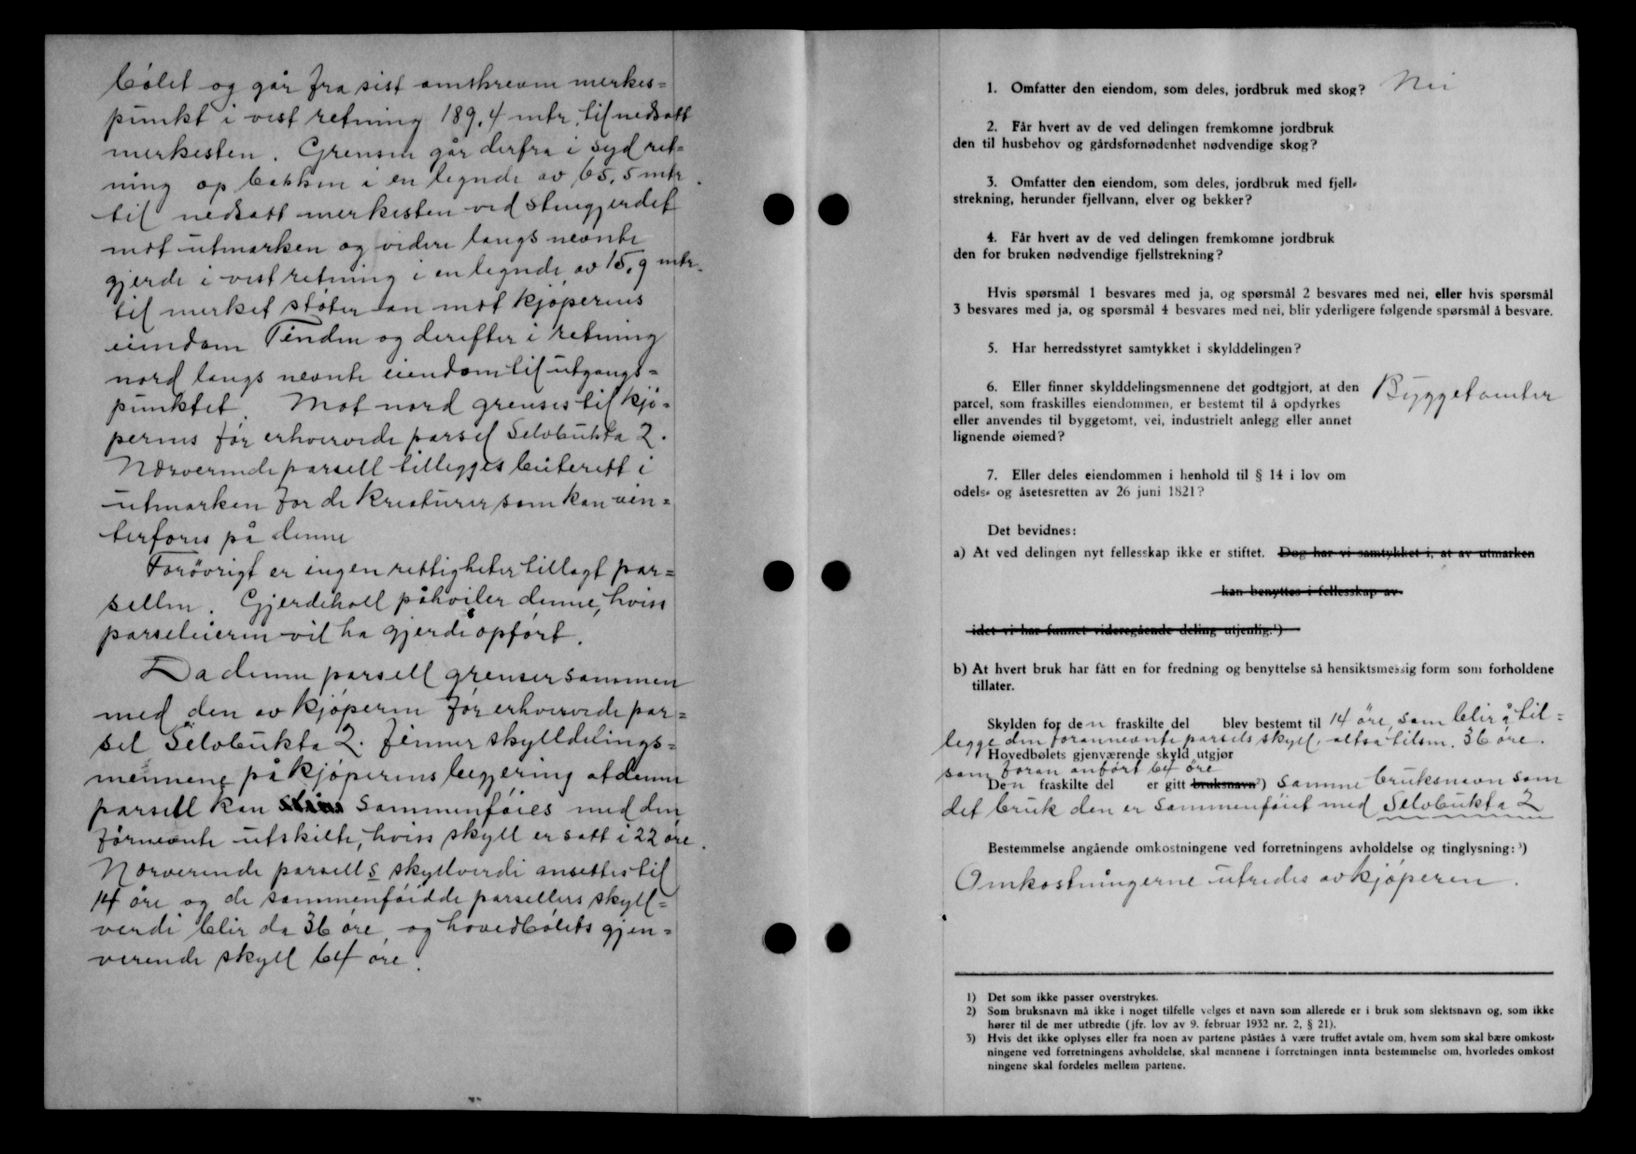 bölet og går fra sist omskrevne merkes=
punkt i vest retning 189,4 mtr. til nedsatt
merkesten. Grensen går derfra i syd ret=
ning op bakken i en legnde av 65,5 mtr.
til nedsatt merkesten ved stengjerdet
mot utmarken og videre langs nevnte
gjerde i vest retning i en legnde av 15,9 mtr.
til merket støter an mot kjöperens
eiendom Tinden og derefter i retning
nord langs nevnte eiendom til utgangs=
punktet. Mot nord grenses til kjö=
perens för erhvervede parsel Selvbukta 2.
Nærverende parsell tillegges beiterett i
utmarken for de kreaturer som kan vin=
terfores på denne
Forövrigt er ingen rettigheter tillagt par=
sellen. Gjerdeholl påhviler denne, hviss
parseleieren vil ha gjerde opfört.
Da denne parsell grenser sammen
med den av kjöperen för erhvervede par=
sel Selvbukta 2. finner skylldelings=
mennene på kjöperens begjering at denne
parsell kan sammenföies med den
förnevnte utskilte, hviss skyll er satt i 22 öre.
Nærverende parsells skyllverdi ansettes til
14 öre og de sammenföidde parsellers skyll=
verdi blir da 36 öre, og hovedbölets gjen=
verende skyll 64 öre.
1. Omfatter den eiendom, som deles, jordbruk med skog? Nei
2. Får hvert av de ved delingen fremkomne jordbruk
den til husbehov og gårdsfornødenhet nødvendige skog?
3. Omfatter den eiendom, som deles, jordbruk med fjell-
strekning, herunder fjellvann, elver og bekker?
4. Får hvert av de ved delingen fremkomne jordbruk
den for bruken nødvendige fjellstrekning?
Hvis spørsmål 1 besvares med ja, og spørsmål 2 besvares med nei, eller hvis spørsmål
3 besvares med ja, og spørsmål 4 besvares med nei, blir yderligere følgende spørsmål å besvare.
5. Har herredsstyret samtykket i skylddelingen?
6. Eller finner skylddelingsmennene det godtgjort, at den Byggetomter
parcel, som fraskilles eiendommen, er bestemt til å opdyrkes
eller anvendes til byggetomt, vei, industrielt anlegg eller annet
lignende øiemed?
7. Eller deles eiendommen i henhold til § 14 i lov om
odels- og åsetesretten av 26 juni 1821?
Det bevidnes:
a) At ved delingen nyt fellesskap ikke er stiftet. Dog har vi samtykket i, at av utmarken
kan benyttes i fellesskap av
idet vi har funnet videregående deling utjenlig.¹)
b) At hvert bruk har fått en for fredning og benyttelse så hensiktsmessig form som forholdene
tillater.
Skylden for den fraskilte del blev bestemt til 14 öre, som blir å til=
legge den forannevnte parsels skyll, altså tilsm. 36 öre.
Hovedbølets gjenværende skyld utgjør
som foran anfört 64 öre
Den fraskilte del er gitt bruksnavn²) samme bruksnavn som
det bruk den er sammenföiet med Selvbukta 2
Bestemmelse angående omkostningene ved forretningens avholdelse og tinglysning:³)
Omkostningerne utredes av kjöperen.
1) Det som ikke passer overstrykes.
2) Som bruksnavn må ikke i noget tilfelle velges et navn som allerede er i bruk som slektsnavn og, som ikke
hører til de mer utbredte (jfr. lov av 9. februar 1932 nr. 2, § 21).
3) Hvis det ikke oplyses eller fra noen av partene påståes å være truffet avtale om, hvem som skal bære omkost-
ningene ved forretningens avholdelse, skal mennene i forretningen innta bestemmelse om, hvorledes omkost
ningene skal fordeles mellem partene.